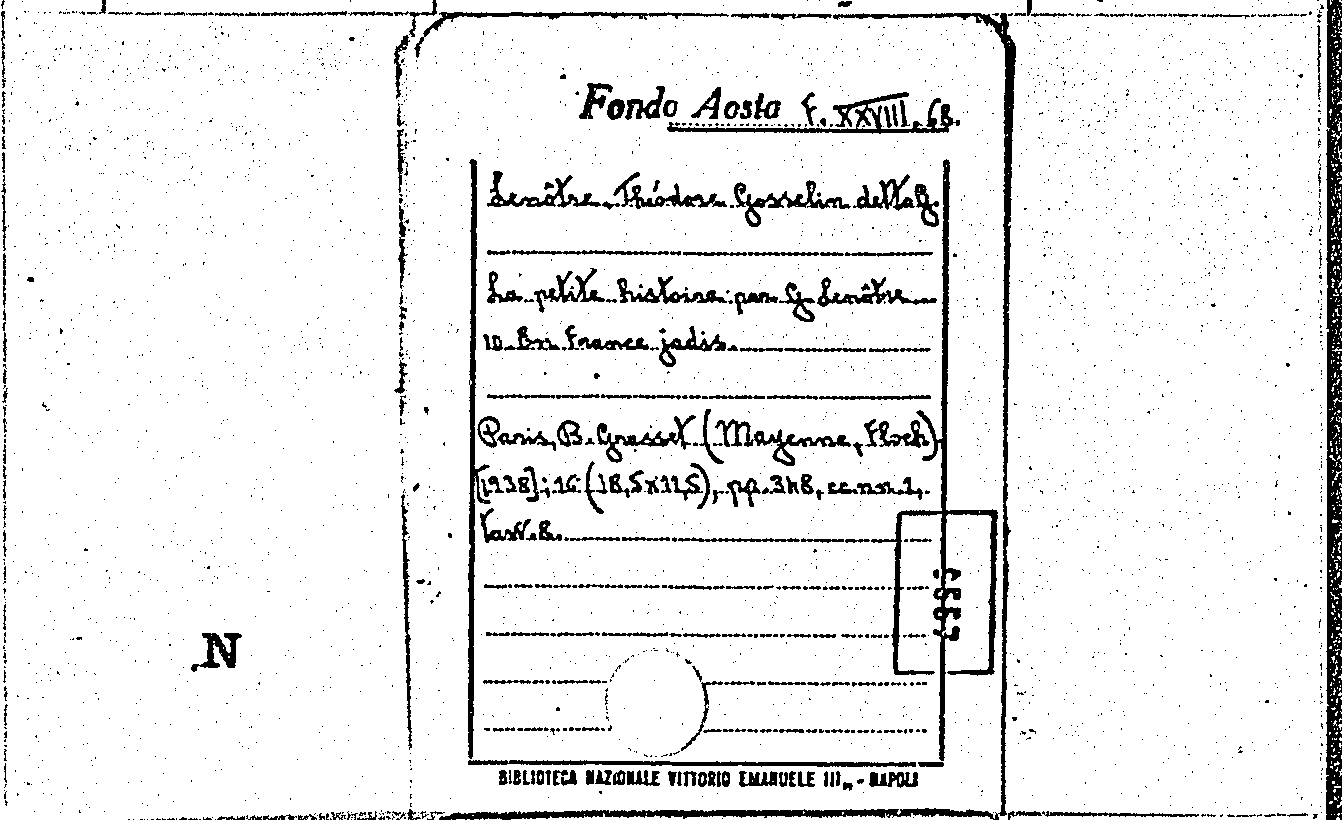 Fondo Aosta F. XXVIII. 68.
Lenôtre, Théodore Gosselin detto G.
La petite histoire par G. Lenôtre
10. En France jadis.
Paris, B. Grasset (Mayenne, Floch)
[1938]; 16 (18,5x11,5), pp. 348, cc.nn.1,
tavv. 8.
N
BIBLIOTECA NAZIONALE VITTORIO EMANUELE III„ - NAPOLI